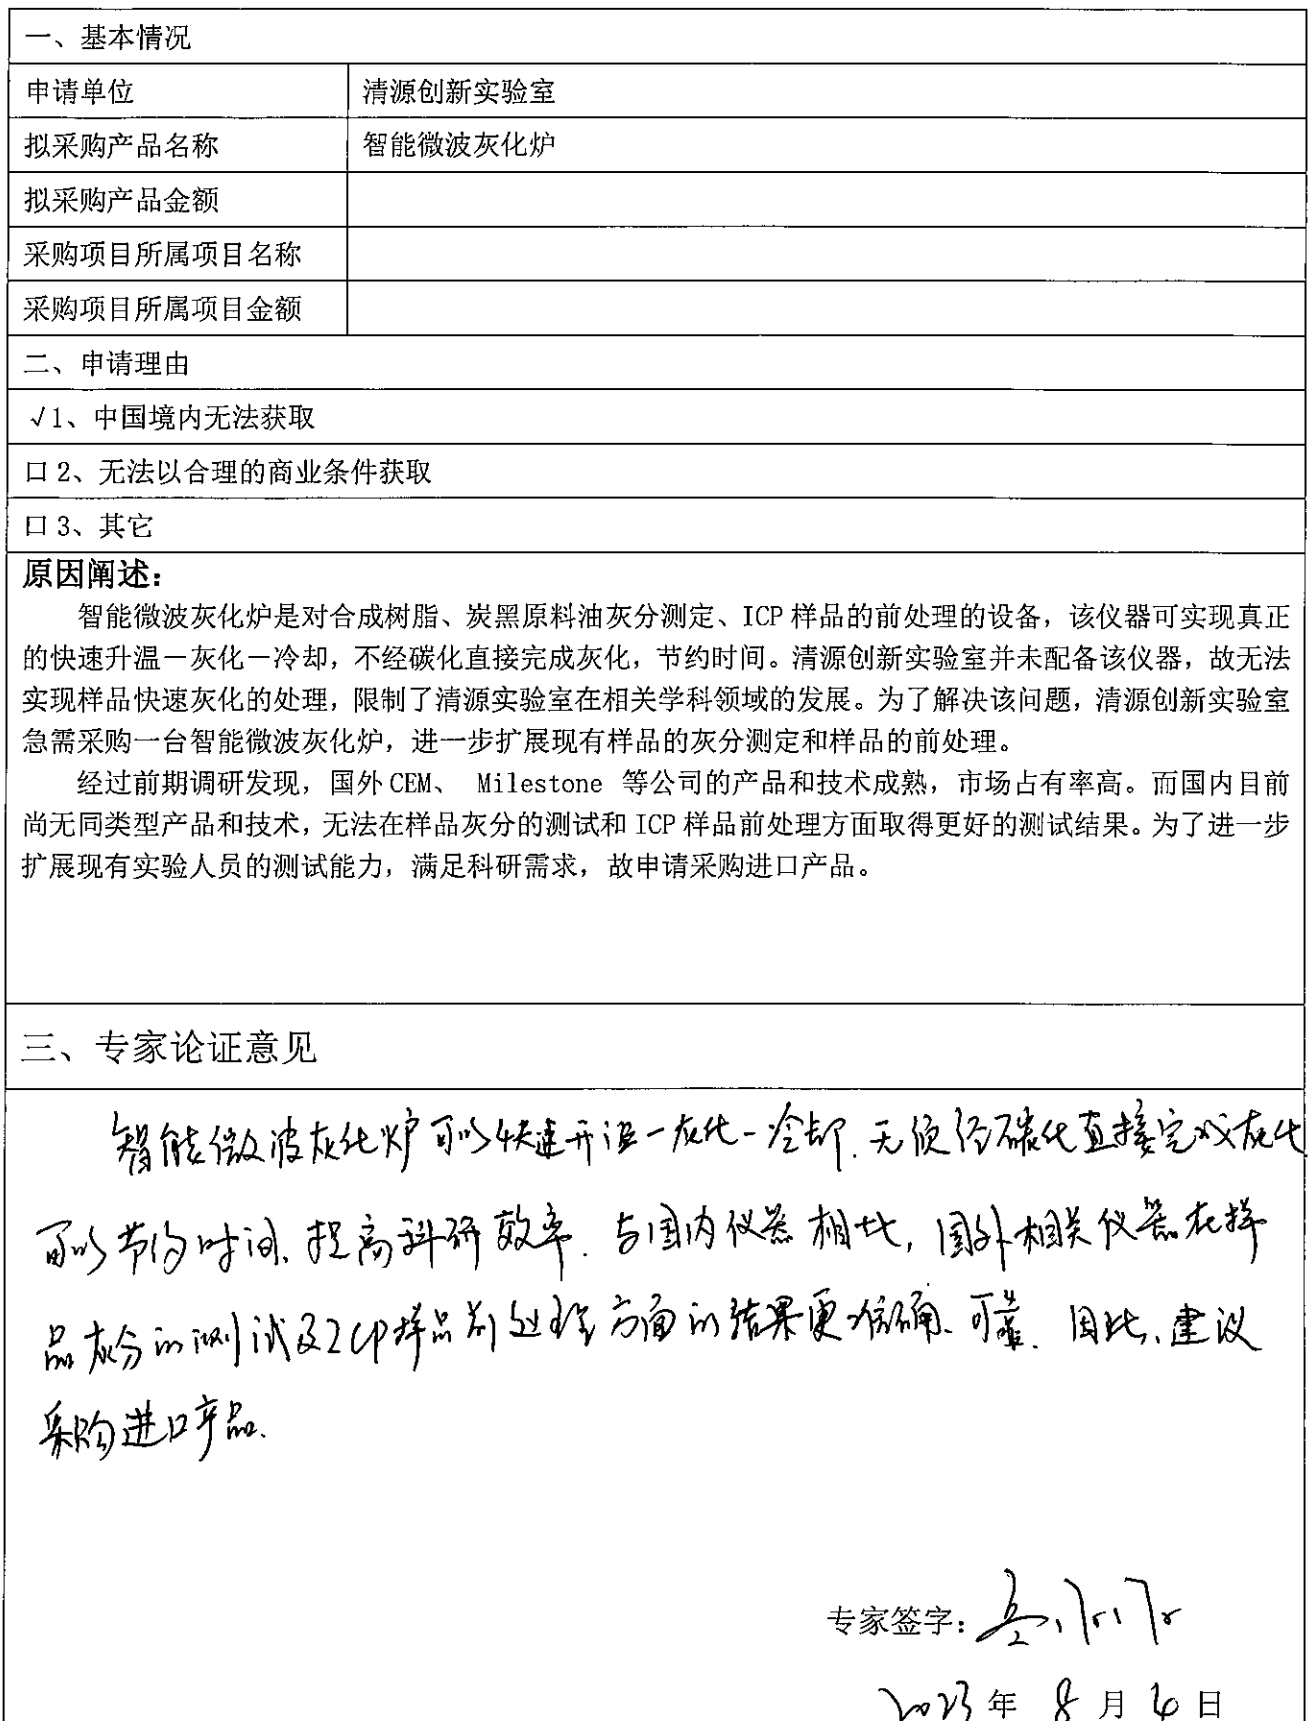 一、基本情况
申请单位 清源创新实验室
拟采购产品名称 智能微波灰化炉
拟采购产品金额
采购项目所属项目名称
采购项目所属项目金额
二、申请理由
√1、中国境内无法获取
口2、无法以合理的商业条件获取
口3、其它
原因阐述：
智能微波灰化炉是对合成树脂、炭黑原料油灰分测定、ICP样品的前处理的设备，该仪器可实现真正
的快速升温－灰化－冷却，不经碳化直接完成灰化，节约时间。清源创新实验室并未配备该仪器，故无法
实现样品快速灰化的处理，限制了清源实验室在相关学科领域的发展。为了解决该问题，清源创新实验室
急需采购一台智能微波灰化炉，进一步扩展现有样品的灰分测定和样品的前处理。
经过前期调研发现，国外CEM、 Milestone 等公司的产品和技术成熟，市场占有率高。而国内目前
尚无同类型产品和技术，无法在样品灰分的测试和ICP样品前处理方面取得更好的测试结果。为了进一步
扩展现有实验人员的测试能力，满足科研需求，故申请采购进口产品。
三、专家论证意见
智能微波灰化炉可以快速升温－灰化－冷却，无须经碳化直接完成灰化
可以节约时间、提高科研效率。与国内仪器相比，国外相关仪器在样
品灰分的测试及ICP样品前处理方面的结果更准确、可靠。因此，建议
采购进口产品。
专家签字：
2023年 8月 日